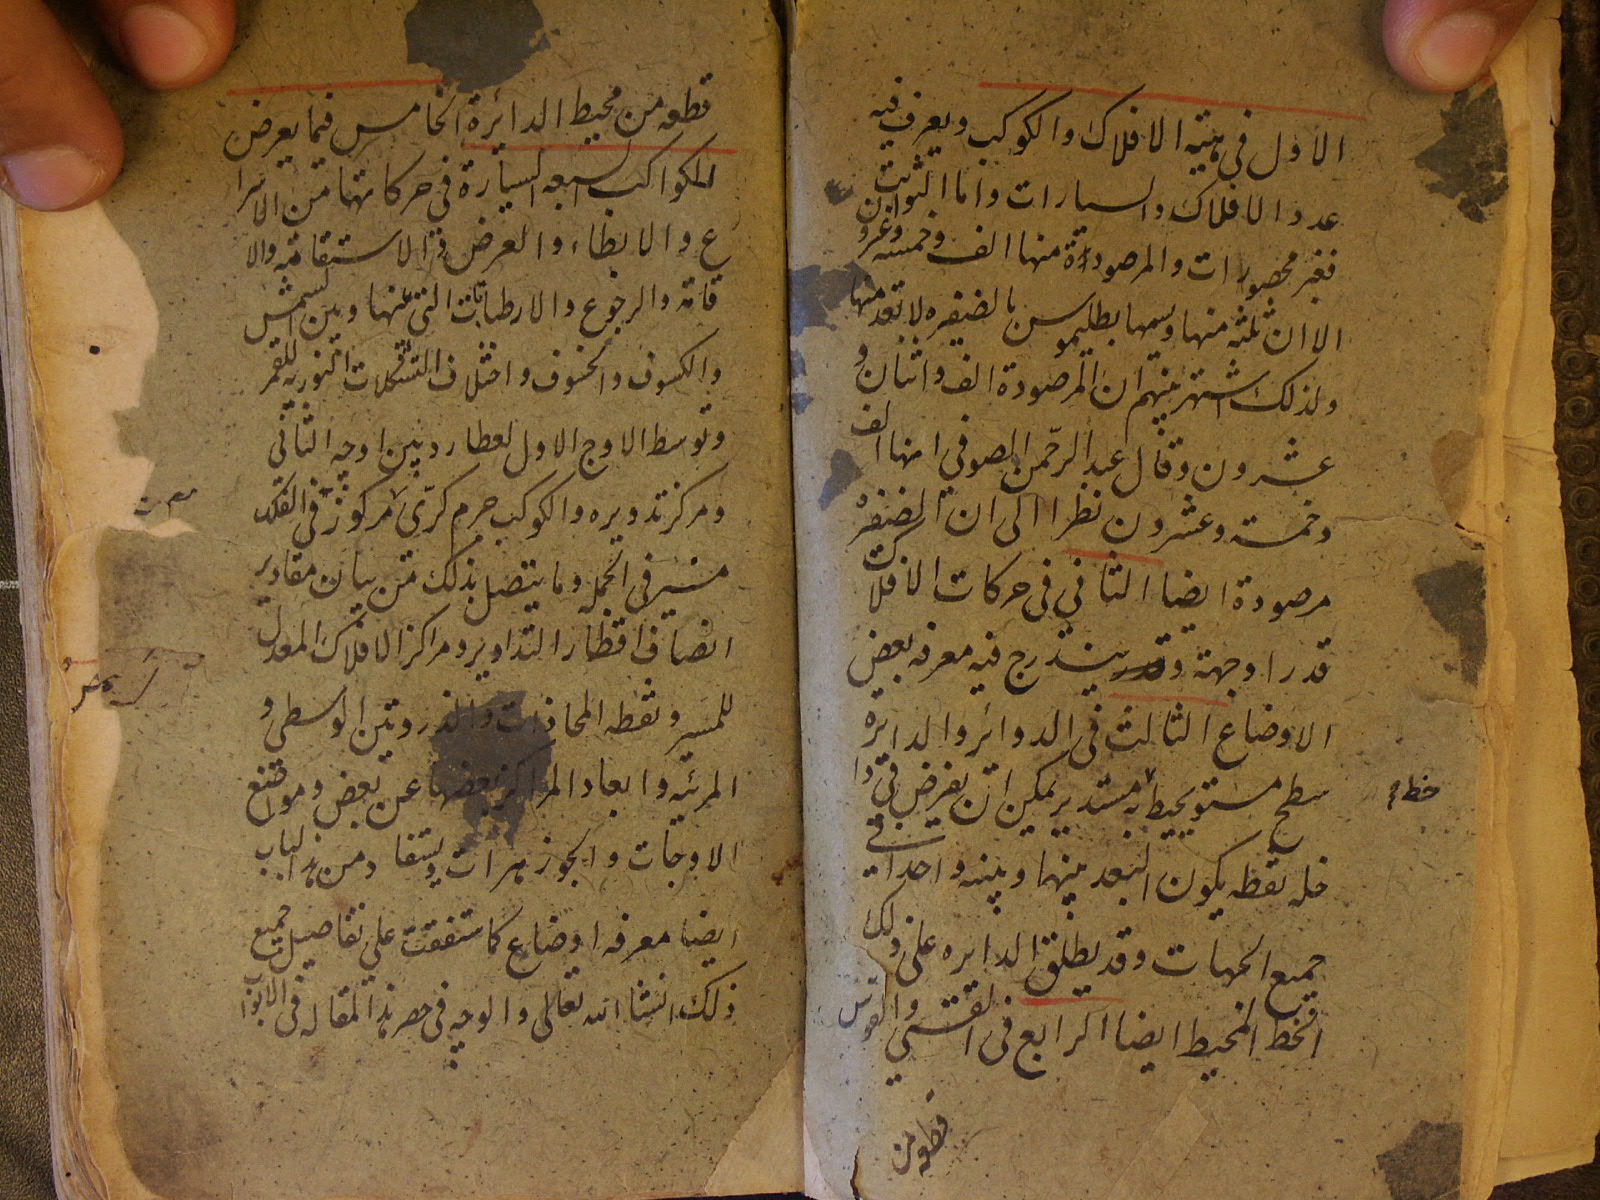 الاول فى هيئة الافلاك والكوكب ويعرف فيه
عدد الافلاك والسيارات واما الثوابت
فغير محصورات والمرصودة منها الف وخمسة وعشرون
الا ان ثلثه منها وسمها بطليموس بالضفيره لا تعد منها
ولذلك اشتهر بينهم ان المرصودة الف واثنان و
عشرون وقال عبد الرحمن الصوفى انها الف
وخمسة وعشرون نظرا الى ان الضفره
مرصودة ايضا الثانى فى حركات الافلاك
قدرا وجهة و يندرج فيه معرفه بعض
الاوضاع الثالث فى الدوائر والدايرة
سطح مستو يحيط به مستدير يمكن ان يفرض فى دا
خط
خله نقطه يكون البعد بينهما وبينه واحدا فى
جميع الجهات وقد يطلق الدايره على ذلك
الخط المحيط ايضا الرابع فى القسى والقوس
قطعه من
قطعه من محيط الدائرة الخامس فيما يعرض
للكواكب السبعه السيارة فى حركاتها من الاسرا
ع والابطاء والعرض و الاستقامة والا
قامة والرجوع والارطباطات التى بينها وبين الشمس
والكسوف والخسوف واختلاف التشكلات النوريه للقمر
وتوسط الاوج الاول لعطارد بين اوجه الثانى
ومركز تدويره والكوكب جرم كرى مركوز فى الفلك
منير فى الجمله وما يتصل بذلك من بيان مقادير
انصاف اقطار التداوير ومراكز الافلاك المعدل
للمسير ونقطه المحاذات والذروتين الوسطى و
المرئيه وابعاد المراكز بعضها عن بعض ومواضع
الاوجات والجوزهرات ويستفاد من هذا الباب
ايضا معرفه اوضاع كما ستقف على تفاصيل جميع
ذلك انشا الله تعالى والوجه فى حصر هذا المقاله فى الابواب